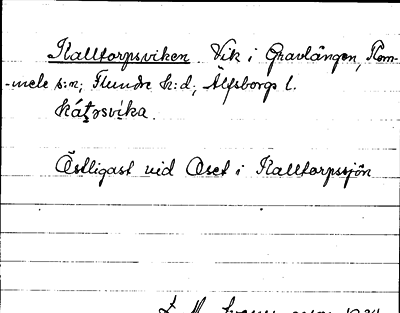 Kalltorpsviken Vik i Gravlången, Rom-
-mele s:n; Flundre h:d; Älfsborgs l.
káţorsvika.
Östligast vid Oset i Kalltorpssjön